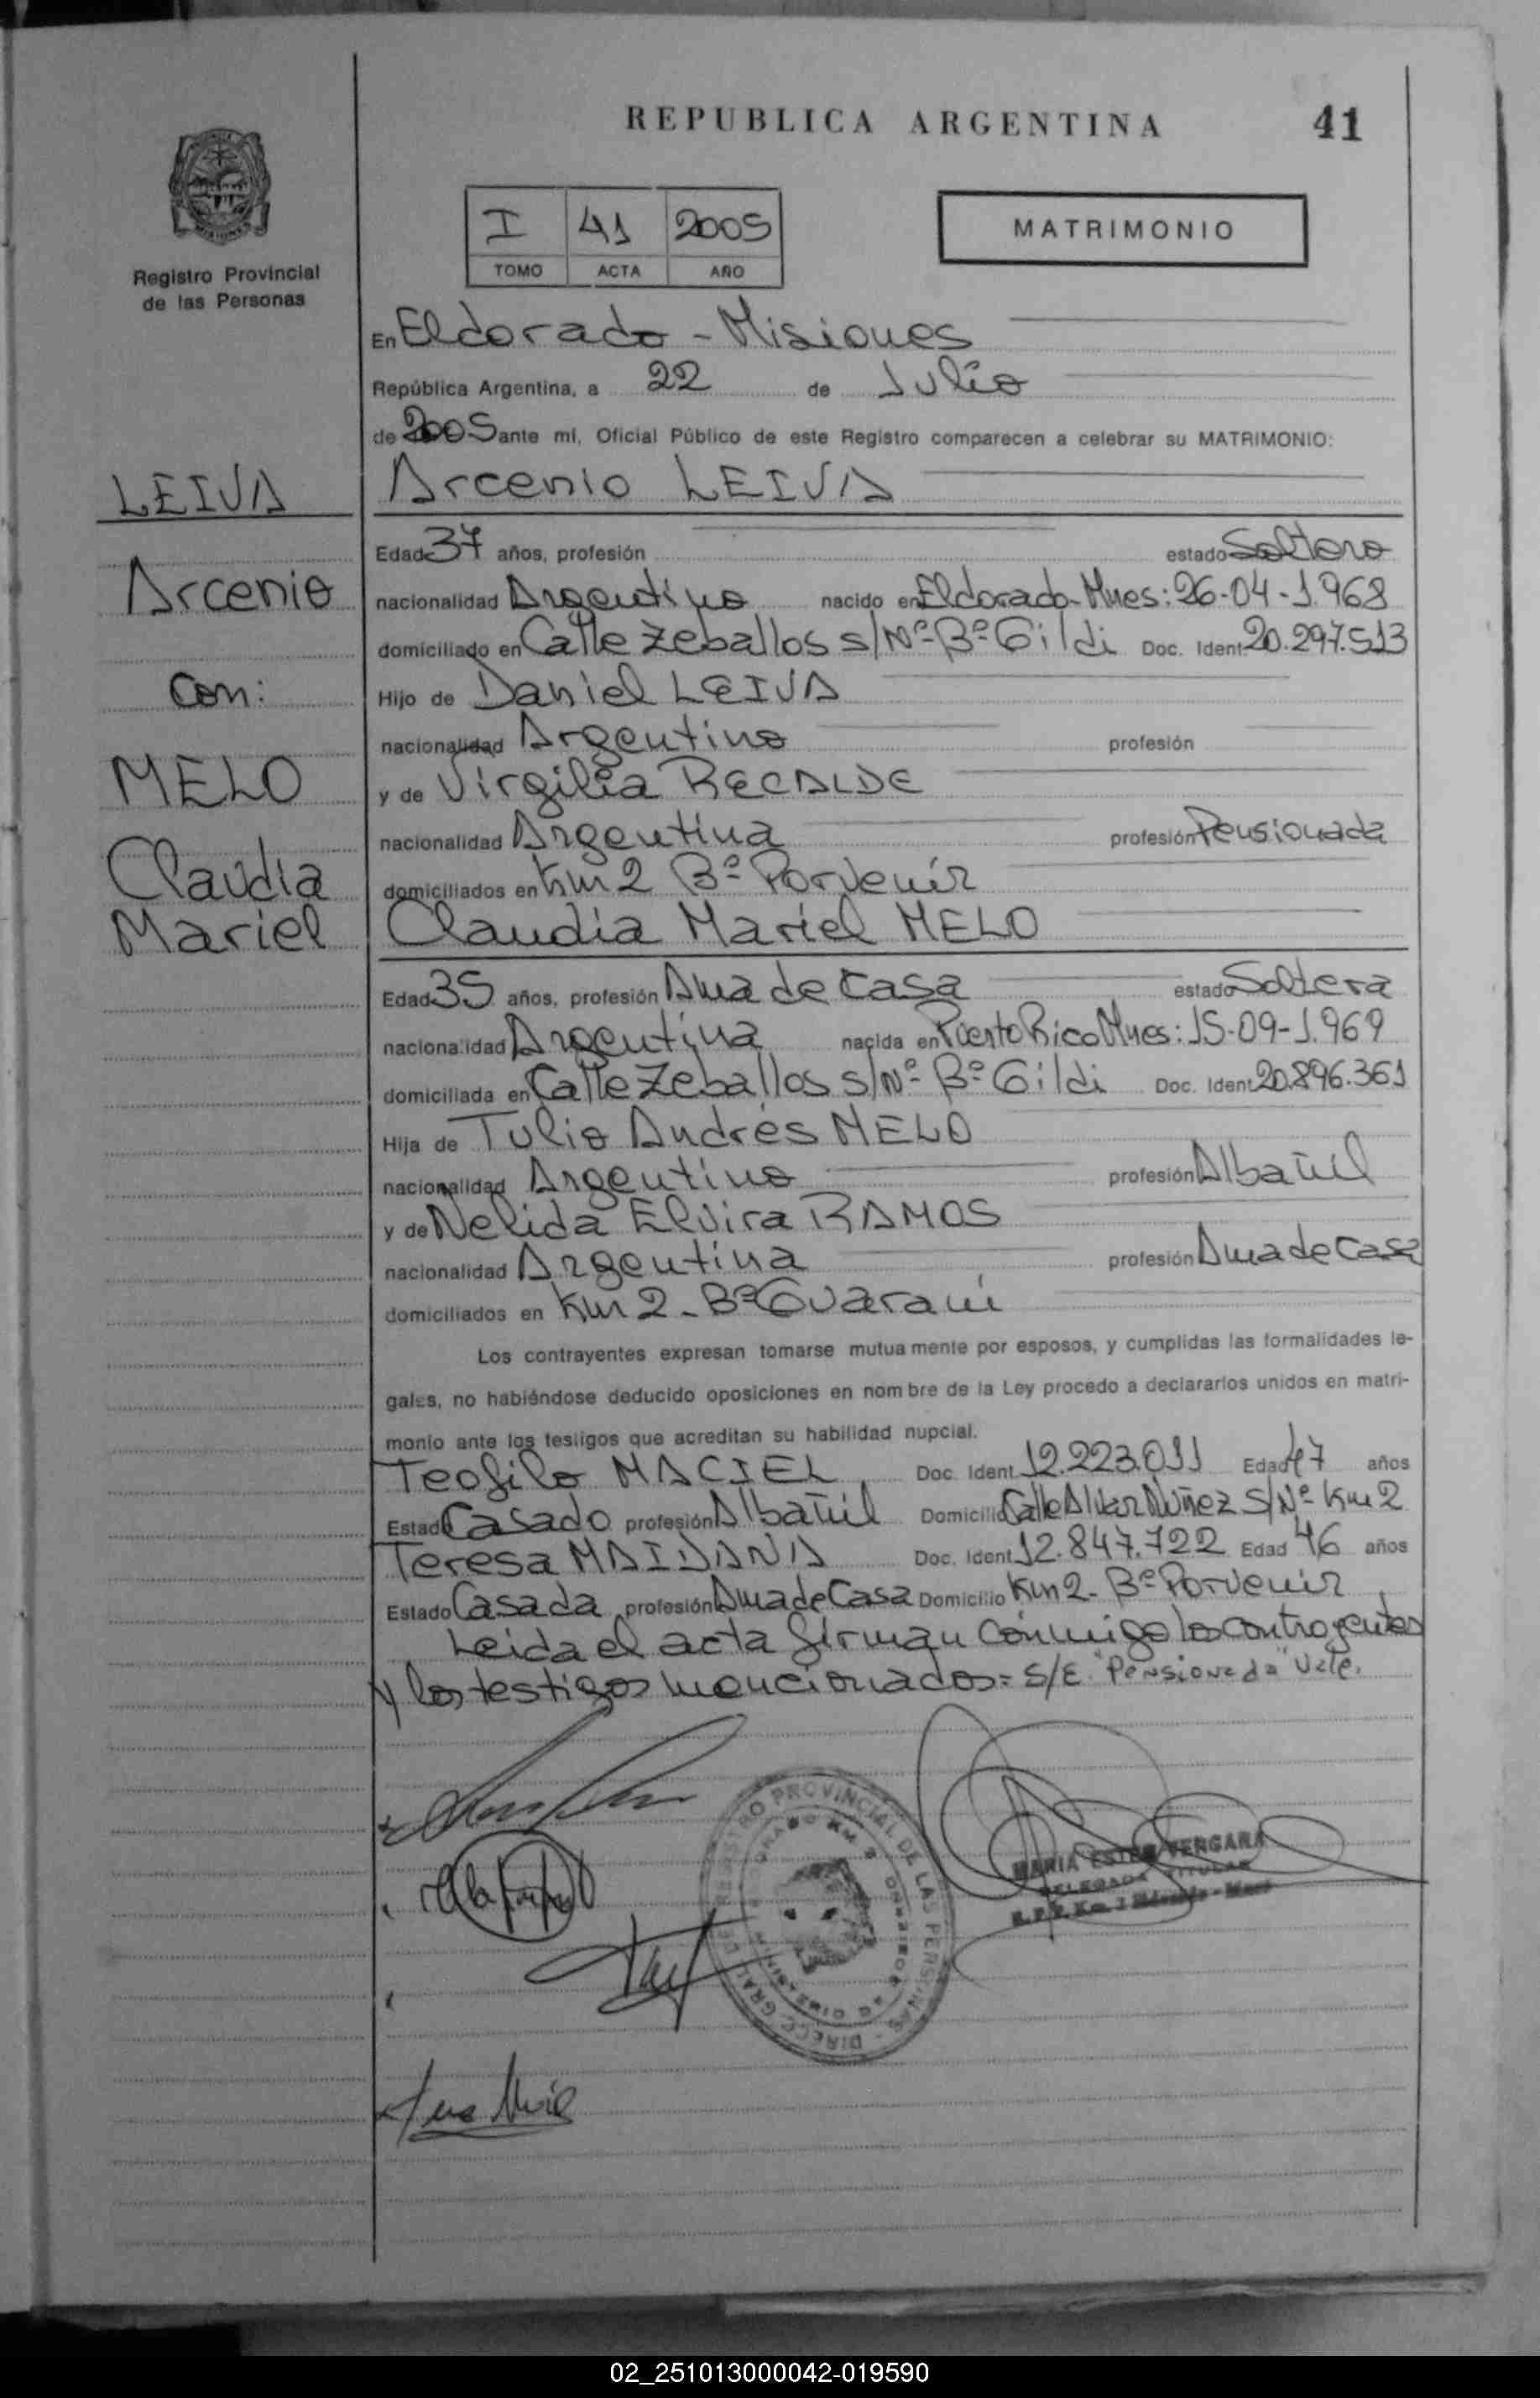 REPUBLICA ARGENTINA
41
I 41 2005
TOMO ACTA AÑO
MATRIMONIO
Registro Provincial
de las Personas
En Eldorado - Misiones
República Argentina, a 22 de Julio
de 2005 ante mí, Oficial Público de este Registro comparecen a celebrar su MATRIMONIO:
LEIVA
Arcenio LEIVA
Edad 37 años, profesión estado Soltero
Arcenio
nacionalidad Argentino nacido en Eldorado-Mnes: 26-04-1.968
domiciliado en Calle Zeballos s/Nº-Bº Gildi Doc. Ident 20.297.513
Con:
Hijo de Daniel LEIVA
nacionalidad Argentino profesión
MELO
y de Virgilia RECALDE
nacionalidad Argentina profesión Pensionada
Claudia
domiciliados en Km 2 Bº Porvenir
Mariel
Claudia Mariel MELO
Edad 35 años, profesión Ama de Casa estado Soltera
nacionalidad Argentina nacida en Puerto Rico Mnes: 15-09-1.969
domiciliada en Calle Zeballos s/Nº- Bº Gildi Doc. Ident 20.896.361
Hija de Tulio Andrés MELO
nacionalidad Argentino profesión Albañil
y de Nelida Elvira RAMOS
nacionalidad Argentina profesión Ama de Casa
domiciliados en Km 2 - Bº Guaraní
Los contrayentes expresan tomarse mutuamente por esposos, y cumplidas las formalidades le-
gales, no habiéndose deducido oposiciones en nombre de la Ley procedo a declararlos unidos en matri-
monio ante los testigos que acreditan su habilidad nupcial.
Teofilo MACIEL Doc. Ident. 12.223.011 Edad 47 años
Estado Casado profesión Albañil Domicilio Calle Alvar Núñez S/Nº Km 2
Teresa MAIDANA Doc. Ident 12.847.722 Edad 46 años
Estado Casada profesión Ama de Casa Domicilio Km 2 - Bº Porvenir
Leida el acta firman conmigo los contrayentes
y los testigos mencionados = S/E "Pensionada" Vale.
REGISTRO PROVINCIAL DE LAS PERSONAS - DIRECC. GRAL.
MARIA ESTER VERGARA
DELEGADA TITULAR
02_251013000042-019590